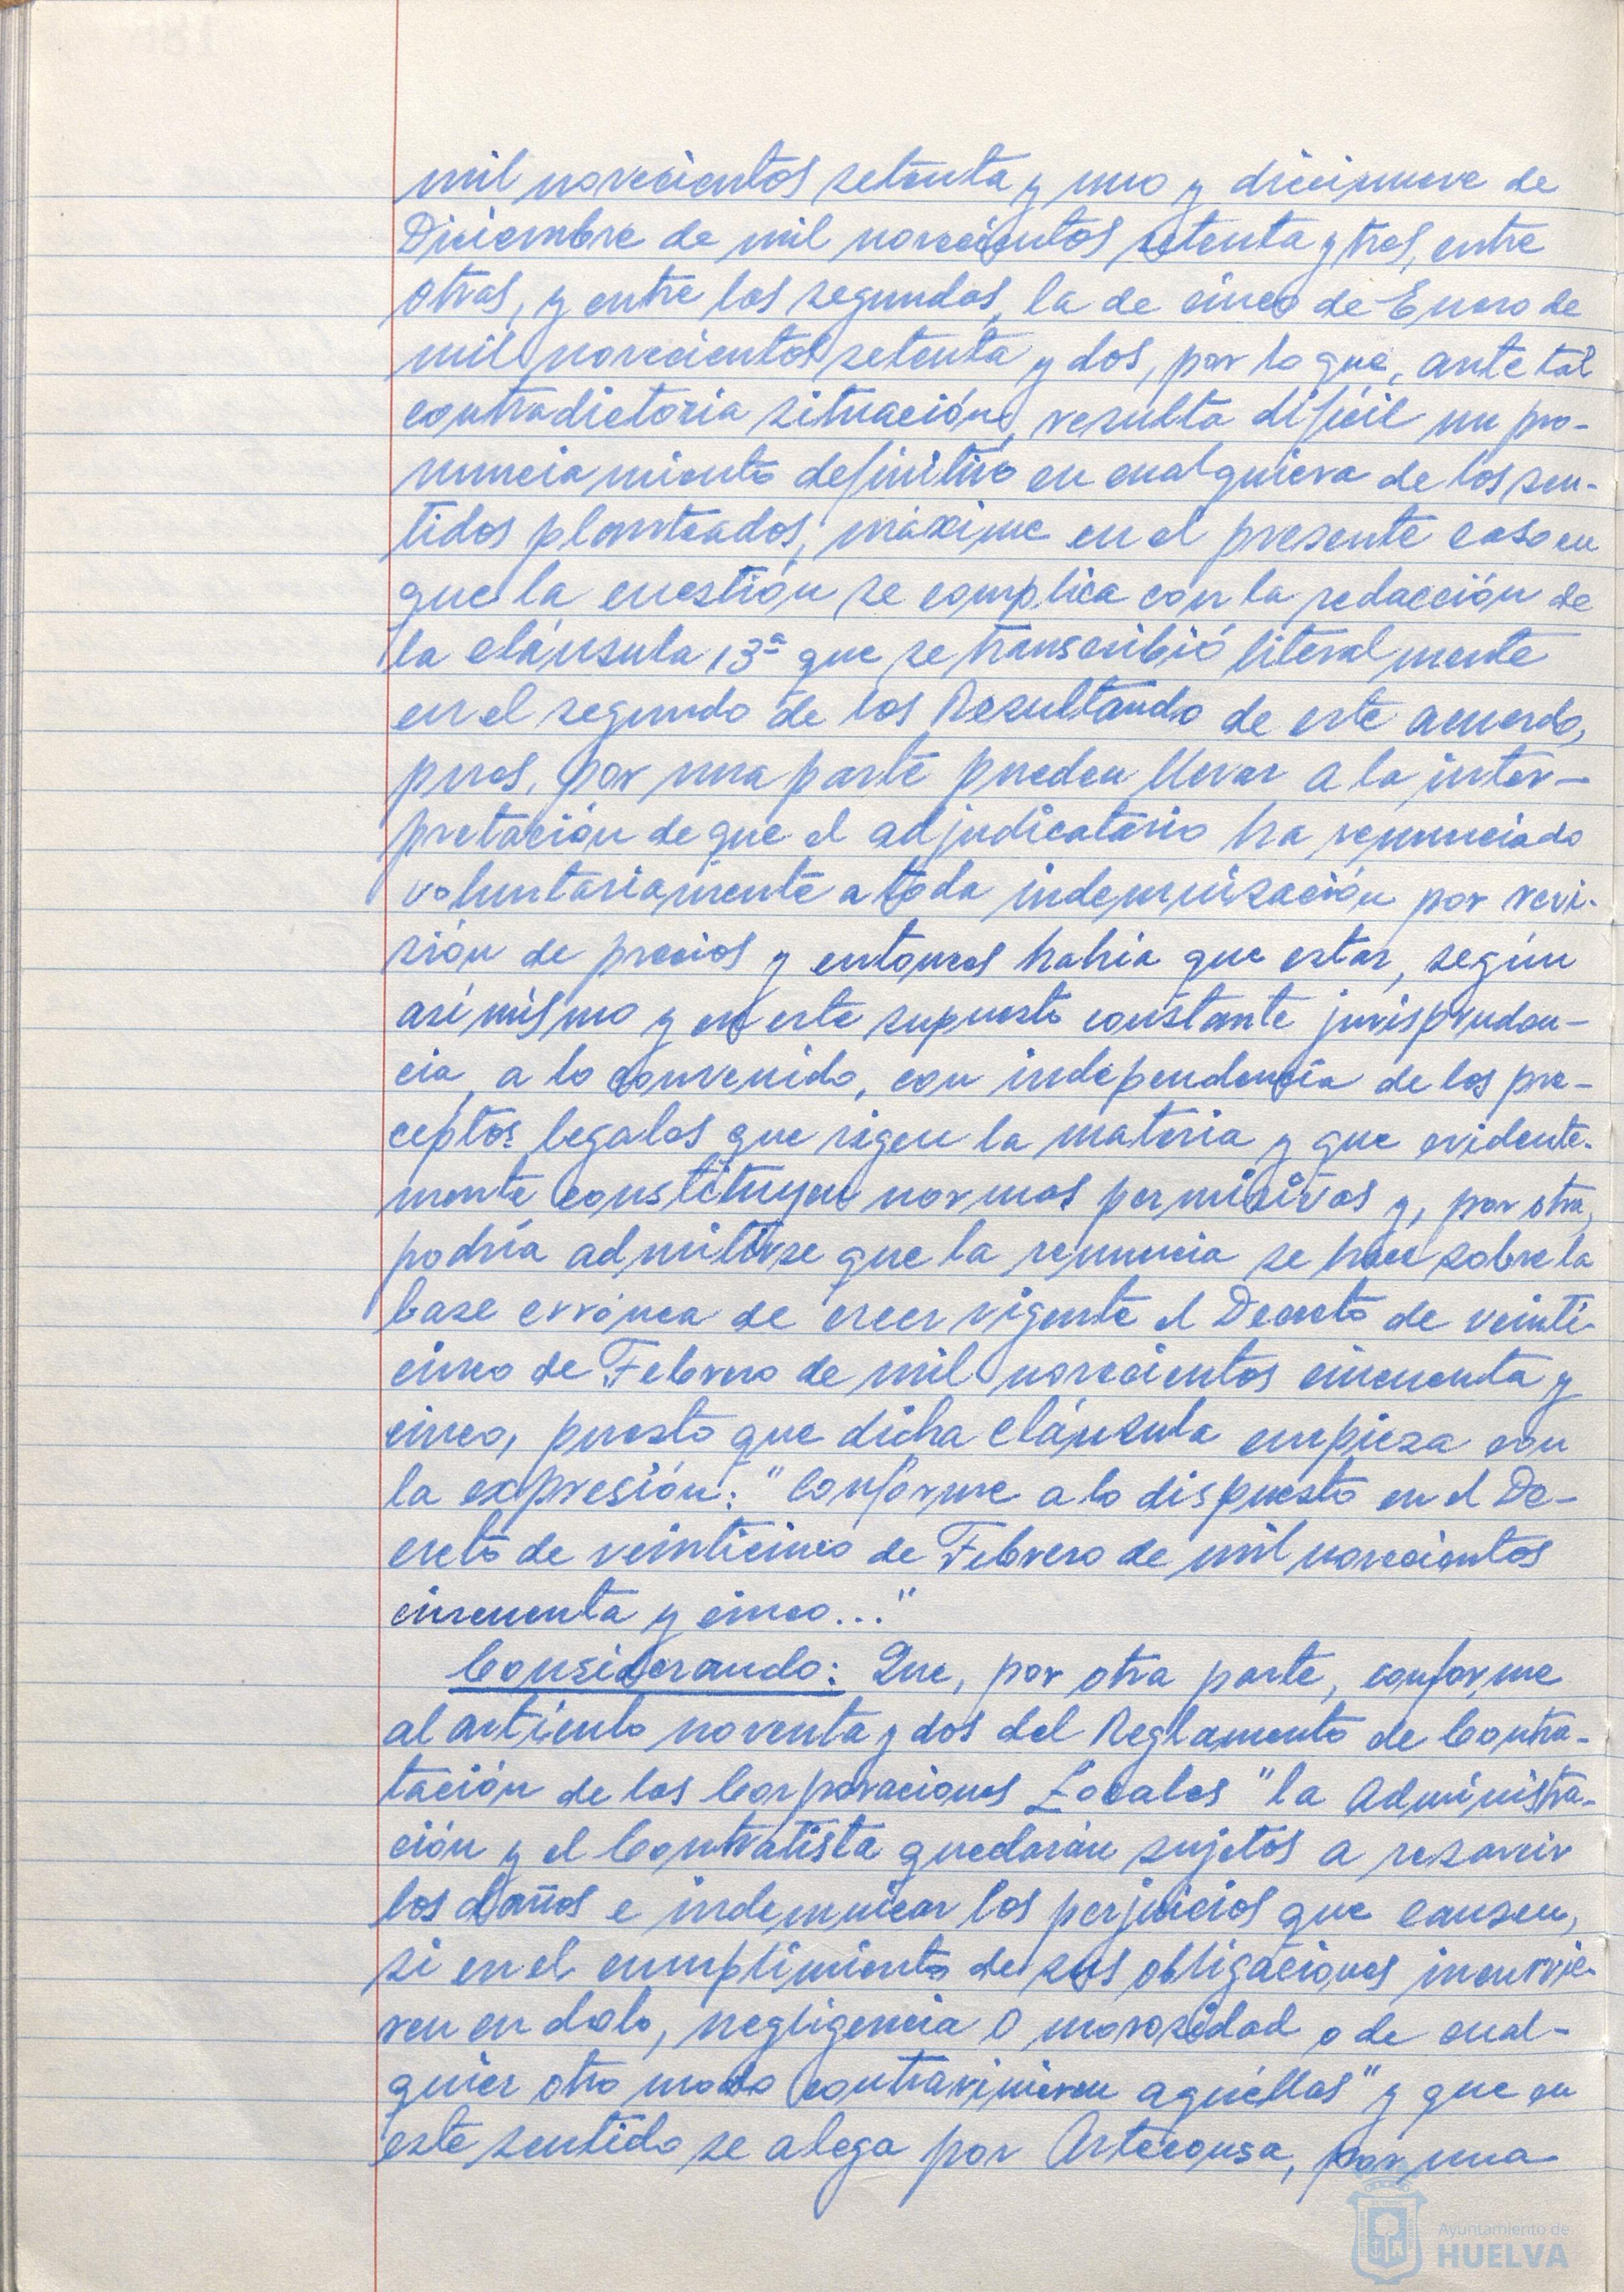 mil novecientos setenta y uno y diecinueve de
Diciembre de mil novecientos setenta y tres, entre
otras, y entre los segundos, la de cinco de Enero de
mil novecientos setenta y dos, por lo que, ante tal
contradictoria situación, resulta difícil un pro-
nunciamiento definitivo en cualquiera de los sen-
tidos planteados, máxime en el presente caso en
que la cuestión se complica con la redacción de
la cláusula 13ª que se transcribió literalmente
en el segundo de los Resultando de este acuerdo,
pues, por una parte pueden llevar a la inter-
pretación de que el adjudicatario ha renunciado
voluntariamente a toda indemnización por revi-
sión de precios y entonces habría que estar, según
asímismo y en este supuesto constante jurispruden-
cia, a lo convenido, con independencia de los pre-
ceptos legales que rigen la materia y que evidente-
mente constituyen normas permisivas y, por otra,
podría admitirse que la renuncia se hace sobre la
base errónea de creer vigente el Decreto de veinti-
cinco de Febrero de mil novecientos cincuenta y
cinco, puesto que dicha cláusula empieza con
la expresión: "Conforme a lo dispuesto en el De-
creto de veinticinco de Febrero de mil novecientos
cincuenta y cinco..."
Considerando: Que, por otra parte, conforme
al artículo noventa y dos del Reglamento de Contra-
tación de las Corporaciones Locales "la Administra-
ción y el Contratista quedarán sujetos a resarcir
los daños e indemnicar los perjuicios que causen,
si en el cumplimiento de sus obligaciones incurrie-
ren en dolo, negligencia o morosidad o de cual-
quier otro modo contravinieren aquéllas" y que en
este sentido se alega por Arteconsa, por una
Ayuntamiento de
HUELVA